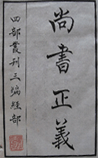 尚書正義
四部叢刊三編經部